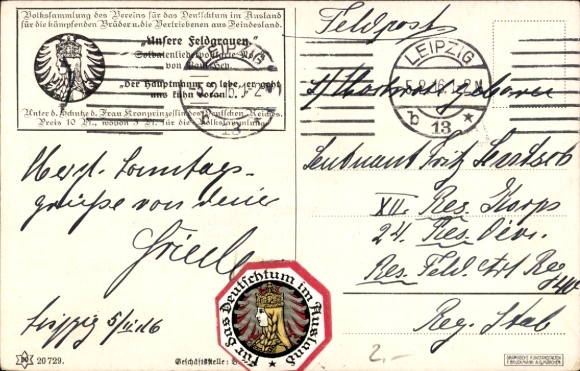 Volkssammlung des Vereins für das Deutschtum im Ausland
für die kämpfenden Brüder u. die Vertriebenen aus Feindesland.
„Unsere Feldgrauen."
Soldatenliederpostkarte No
von Paul Hey.
„Der Hauptmann er lebe, er geht
uns kühn voran"
Unter d. Schutze d. Frau Kronprinzessin des Deutschen Reichs.
Preis 10 Pf., wovon 5 Pf. für die Volkssammlung
LEIPZIG
13
Feldpost
LEIPZIG
5.2.16
b 13 *
Herzl. Sonntags-
grüße von deiner
Friedl
Leipzig 5/II.16
Leutnant Fritz
XII. Res. Korps
24. Res. Divi.
Res. Feld. Art Reg
Reg. Stab
Für das Deutschtum im Ausland
2.-
20729.
Geschäftsstelle: B
GRAPHISCHE KUNSTANSTALTEN
F. BRUCKMANN A.G. MÜNCHEN